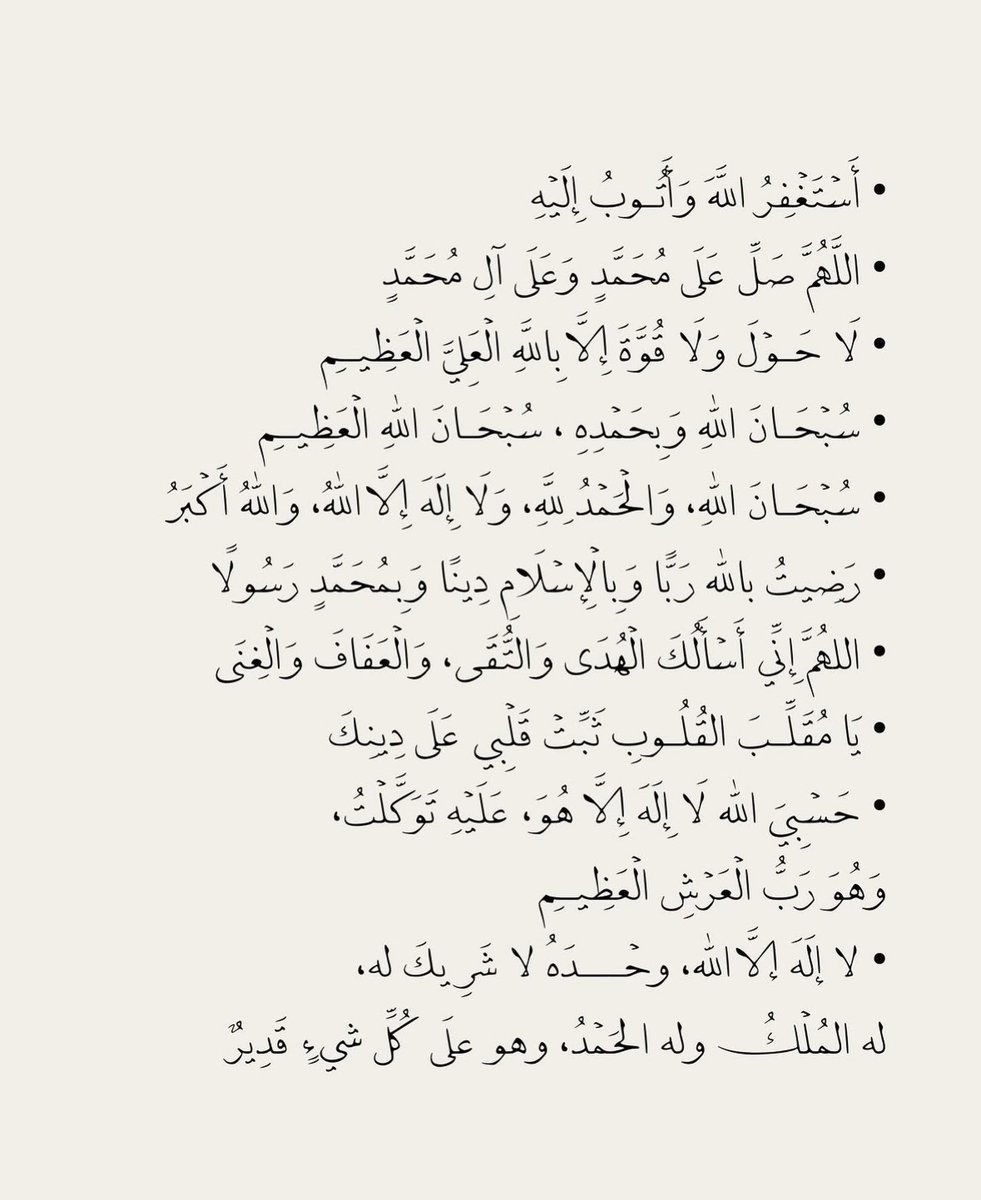 • أَسْتَغْفِرُ اللَّهَ وَأَتُـوبُ إِلَيْهِ
• اللَّهُمَّ صَلِّ عَلَى مُحَمَّدٍ وَعَلَى آلِ مُحَمَّدٍ
• لَا حَـوْلَ وَلَا قُوَّةَ إِلَّا بِاللَّهِ الْعَلِيَّ الْعَظِيـمِ
• سُبْحَـانَ اللهِ وَبِحَمْدِهِ ، سُبْحَـانَ اللهِ الْعَظِيـمِ
• سُبْحَـانَ اللهِ، وَالْحَمْدُ لِلَّهِ، وَلَا إِلَهَ إِلَّا اللهُ، وَاللهُ أَكْبَرُ
• رَضِيتُ بالله رَبًّا وَبِالْإِسْلَامِ دِينًا وَبِمُحَمَّدٍ رَسُولًا
• اللهُمَّ إِنِّي أَسْأَلُكَ الْهُدَى وَالتُّقَى، وَالْعَفَافَ وَالْغِنَى
• يَا مُقَلِّـبَ القُلُـوبِ ثَبِّتْ قَلْبِي عَلَى دِينِكَ
• حَسْبِيَ الله لَا إِلَهَ إِلَّا هُوَ، عَلَيْهِ تَوَكَّلْتُ،
وَهُوَ رَبُّ الْعَرْشِ الْعَظِيـمِ
• لا إِلَهَ إلَّا الله، وحْـــدَهُ لا شَرِيكَ له،
له المُلْكُ وله الحَمْدُ، وهو علَى كُلِّ شيءٍ قَدِيرٌ